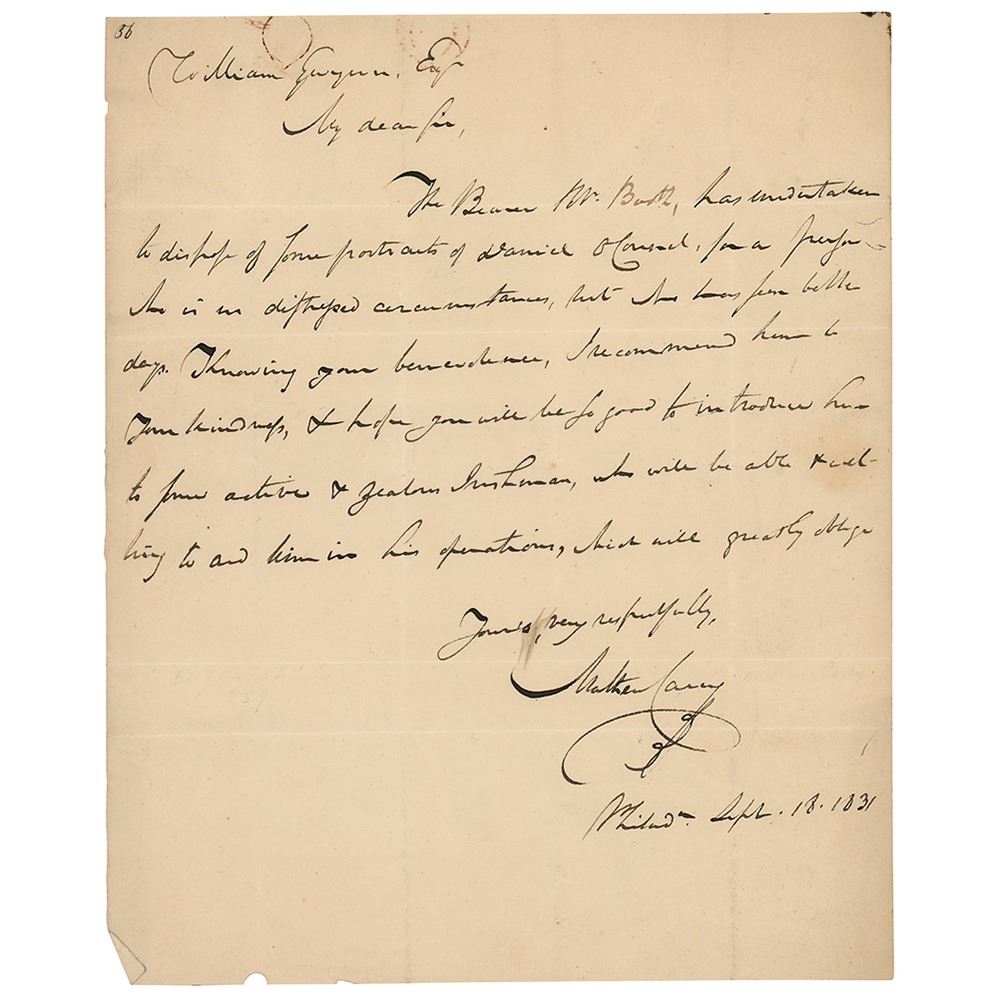 56
William Gwynn, Esqr
My dear Sir,
The Bearer Mr. Booth, has undertaken
to dispose of some portraits of Daniel OConnel, for a person
who is in distressed circumstances, but who has seen better
days. Knowing your benevolence, I recommend him to
your kindness, & hope you will be so good to introduce him
to some active & zealous Irishman, who will be able & wil-
ling to aid him in his operations, which will greatly oblige
Yours, very respectfully,
Mathew Carey
Philada. Sept. 18. 1831